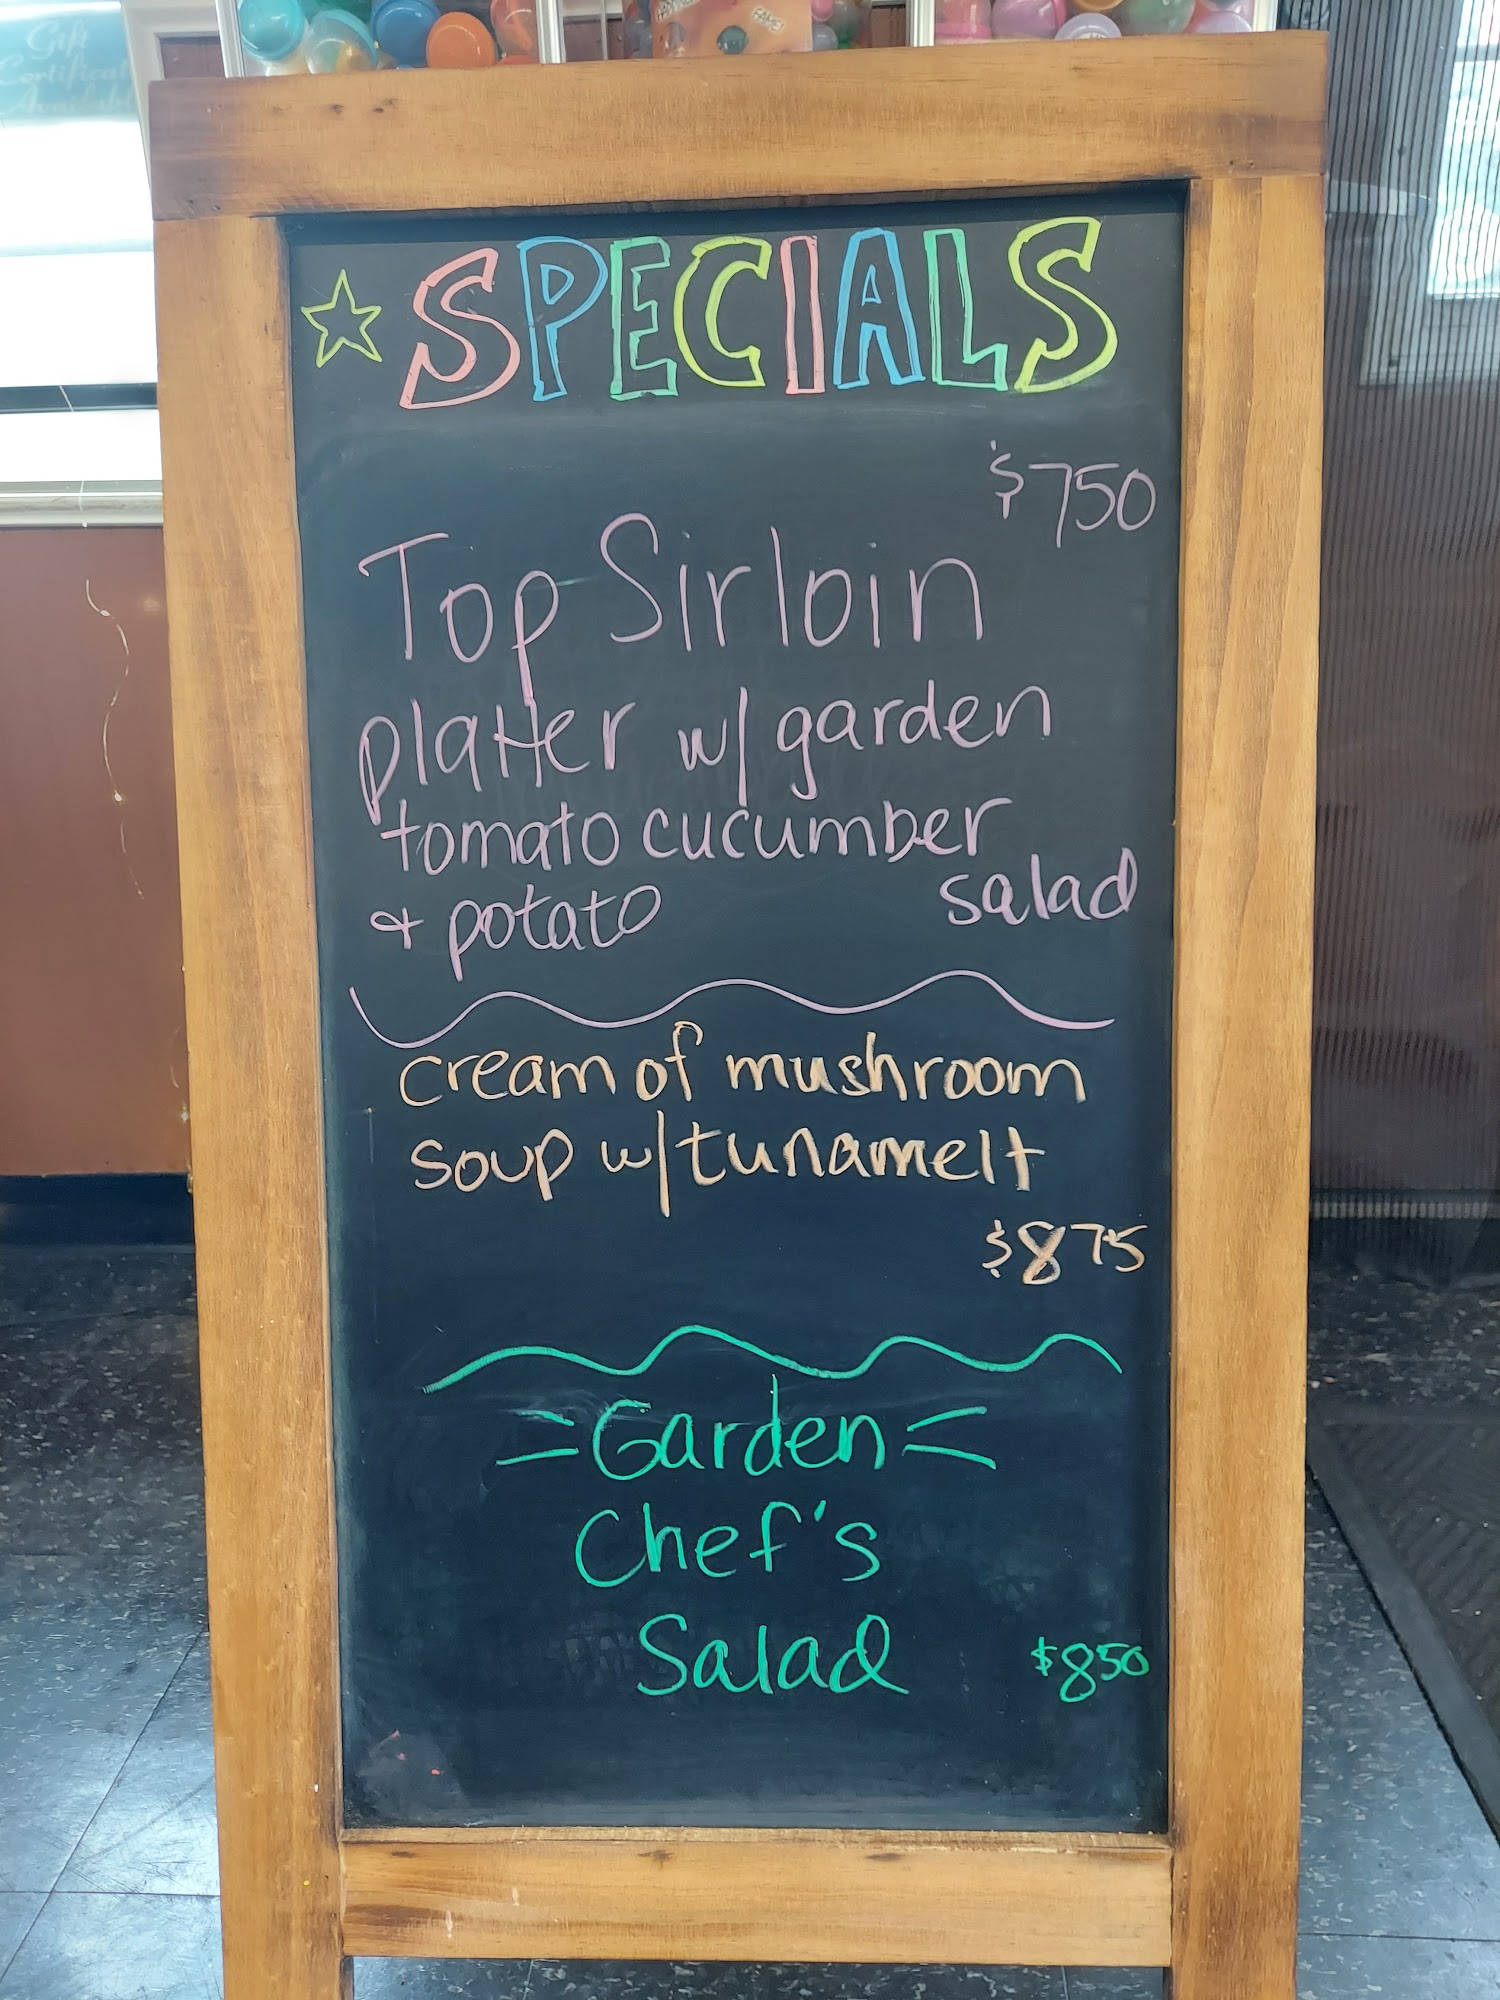 Gift
Certificates
Available
SPECIALS
$750
Top Sirloin
platter w/ garden
tomato cucumber
salad
& potato
cream of mushroom
soup w/ tunamelt
$875
Garden
Chef's
Salad
$850